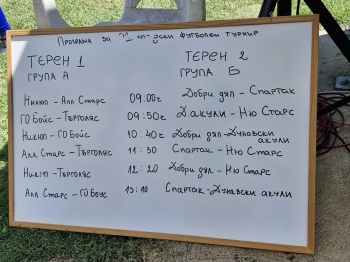 Програма за футболен турнир
ТЕРЕН 1
ГРУПА А
ТЕРЕН 2
ГРУПА Б
Никюп - Алл Старс 09:00ч Добри дял - Спартак
ГО Бойс - Търголяс 09:50ч Д.акули - Ню Старс
Никюп - ГО Бойс 10:40ч Добри дял - Дунавски акули
Алл Старс - Търголяс 11:30 Спартак - Ню Старс
Никюп - Търголяс 12:20 Добри дял - Ню Старс
Алл Старс - ГО Боус 13:10 Спартак - Дунавски акули